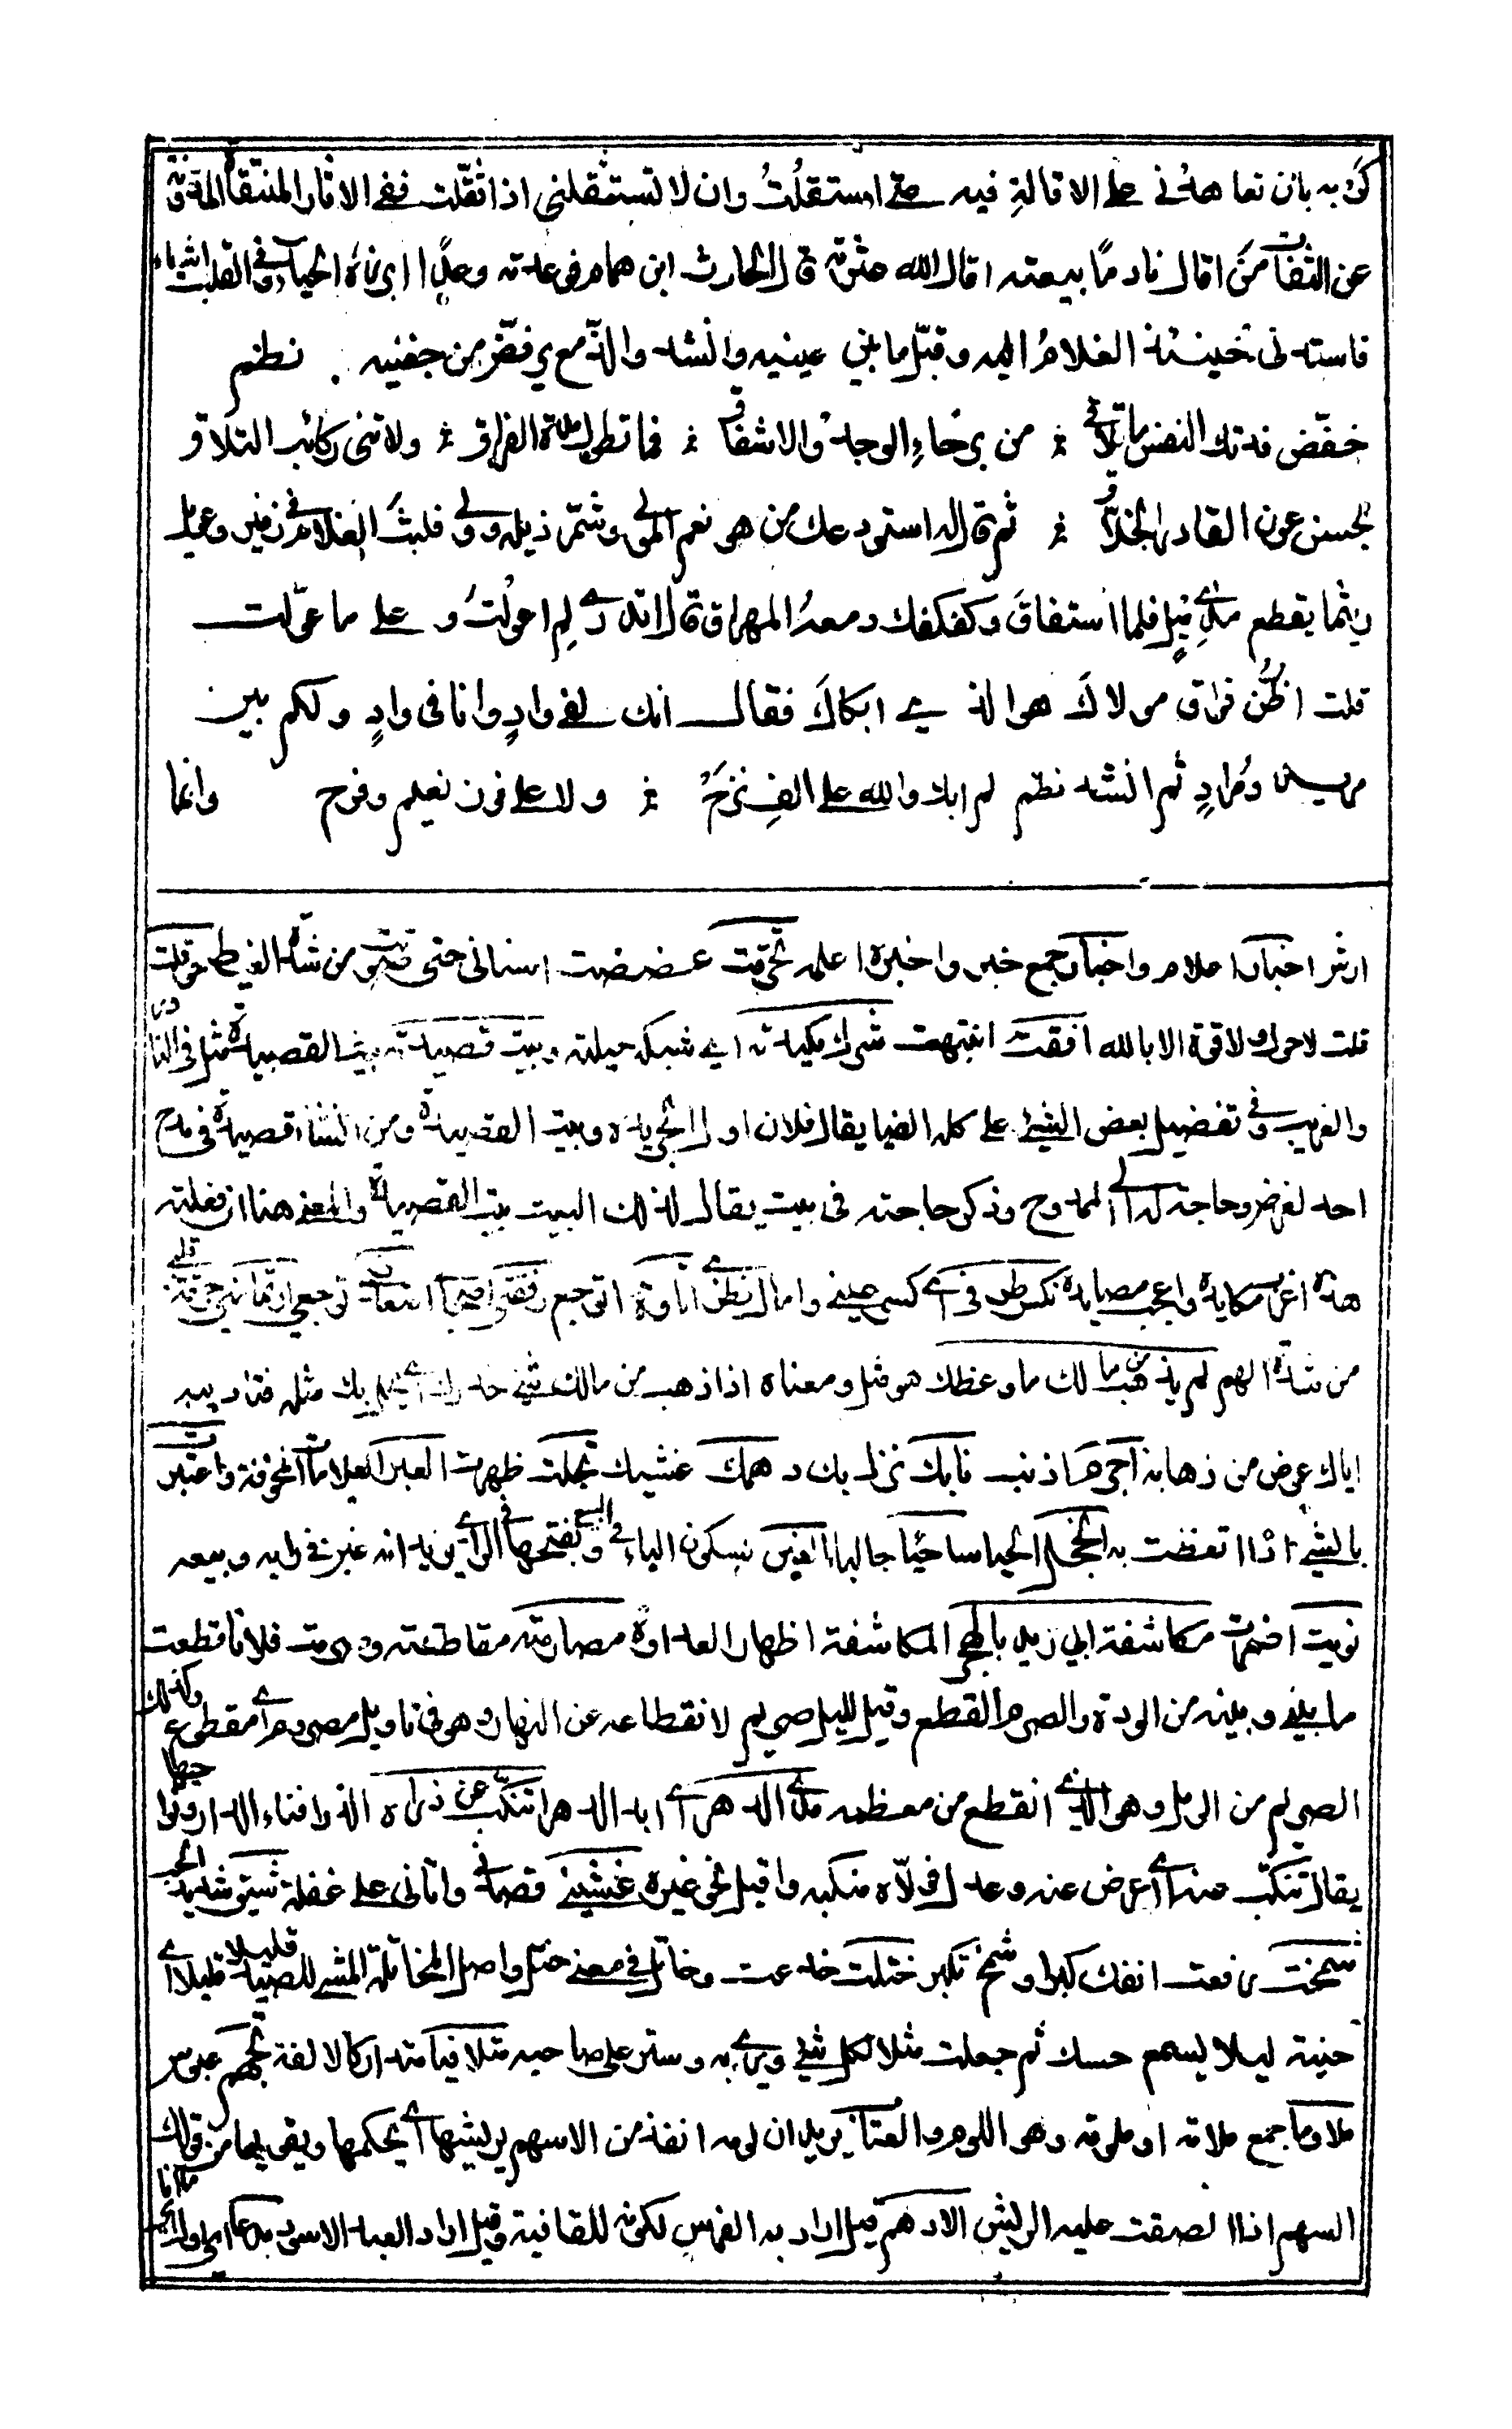 كَرَّ به بان تعاهدُني على الاقالةِ فيه متى استقلتُ وان لا تستثقلني اذا ثقّلت ففى الاثار المنتقاة المروية
عن الثقات من اقال نادمًا بيعته اقال الله عثرته قال الحارث ابن همام فوعدته وعدًا ابرزه الحياء وفى القلب اشياء
فاستدنى حينئذ الغلام اليه وقبّل ما بين عينيه وانشد والدّمع يرفضّ من جفنيه نظم
خفّض فدتك النفس ما تلاقى من برحاءِ الوجد والاشفاق فما تطول مدة الفراق ولا تنى ركائب التلاقى
بحسن عون القادر الخلّاق ثم قال له استودعك من هو نعم المولى وشمّر ذيله وولى فلبثَ الغلام فى زفير وعويل
ريثما يقطع مدى ميلٍ فلما استفاقَ وكفكف دمعهُ المهراق قال اتدرى لِم اعولتُ وعلى ما عوّلت
قلت اظنّ فراق مولاكَ هو الذى ابكاكَ فقال انك لفى وادٍ وانا فى وادٍ ولكم بين
مريد ومُرادٍ ثم انشد نظم لم ابك والله على الفٍ نزحْ ولا على فوت نعيم وفرح وانما
ارشد اخبار اعلام واخبار جمع خبر واخبره اعلمه تحرّقت عضضت اسنانى حتى من شدة الغيظ حوقلت
قلت لا حول ولا قوة الا بالله افقت انتبهت شرك مكيدته اى شبكة حيلته وبيت قصيدته بيت القصيدة مثل فى النادر
والغريب وفى تفضيل بعض الشئ على كله ايضا يقال فلان اول الجريدة وبيت القصيدة ومن انشاء قصيدة فى مدح
احد لغرض وحاجة له الى الممدوح وذكر حاجته فى بيت يقال لذلك البيت بيت القصيدة والمعنى هنا ان فعلته
هذه اغرب مكايده واعجب مصايده نكس طرفى اى كسر عينى وامال نظرى اتاوه اتوجع رفقتى اصحابى توجعى
من شدة الهم لم يذهب من مالك ما وعظك هو مثل ومعناه اذا ذهب من مالك شئ
اياك عوض من ذهابه اجرم اذنب نابك نزل بك دهمك غشيك تجلت ظهرت العبر العلامات المخوفة واعتبرت
بالشئ اذا اتعظت به الخجل الحيا ساحبًا جالبا الغبن بسكون الباء فى البيع وبفتحها فى الراى يريد انه غبن فى رايه وبيعه
نويت اضمرت مكاشفة ابى زيد بالهجر المكاشفة اظهار العداوة مصارمته مقاطعته وصرمت فلانا قطعت
ما بينى وبينه من المودة والصرم القطع وقيل لليل صريم لانقطاعه عن النهار وهو فى تاويل مصروم اى مقطوع وكذلك
الصريم من الرمل وهو الذى انقطع من معظمه مدى الدهر اى ابد الدهر اتنكّب عن ذراه الذرا فناء الدار ونواحيها
يقال تنكّب عنه اى اعرض عنه وعدل فولّاه منكبه واقبل نحو غيره غشينى قصدنى واتانى على غفلة شيّق شديد الحب
شمخت رفعت انفك كبرا وشمخ تكبر ختلت خدعت وخاتل فى معنى ختل واصل المخاتلة المشى للصيد قليلا قليلا اى
خفية ليلا يسمع حسك ثم جعلت مثلا لكل شئ ورى به وستر على صاحبه متلافيا متداركا لالفة تجهم عبوس
ملاوما جمع ملامة او ملومة وهو اللوم والعتاب يريد ان لومه انفذ من الاسهم يريشها اى يحكمها ويقويها من قولك
السهم اذا الصقت عليه الريش الادهم قيل اراد به الفرس لكونه للقافية وقيل اراد العبد الاسود